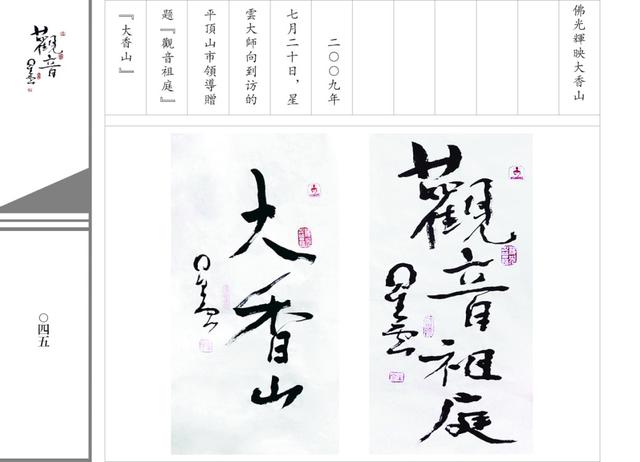 佛光輝映大香山
二〇〇九年
七月二十日，星
雲大師向到訪的
平頂山市領導贈
題『觀音祖庭』
『大香山』
觀音祖庭
星雲
大香山
星雲
觀音
星雲
〇四五